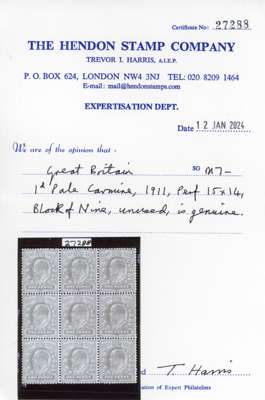 Certificate No: 27288
THE HENDON STAMP COMPANY
TREVOR I. HARRIS, A.I.E.P.
P. O. BOX 624, LONDON NW4 3NJ TEL: 020 8209 1464
E-mail: mail@hendonstamps.com
EXPERTISATION DEPT.
Date 12 JAN 2024
We are of the opinion that -
Great Britain SG
1d Pale Carmine, 1911, Perf 15x14,
Block of Nine, unused, is genuine.
27288
T Harris
ation of Expert Philatelists